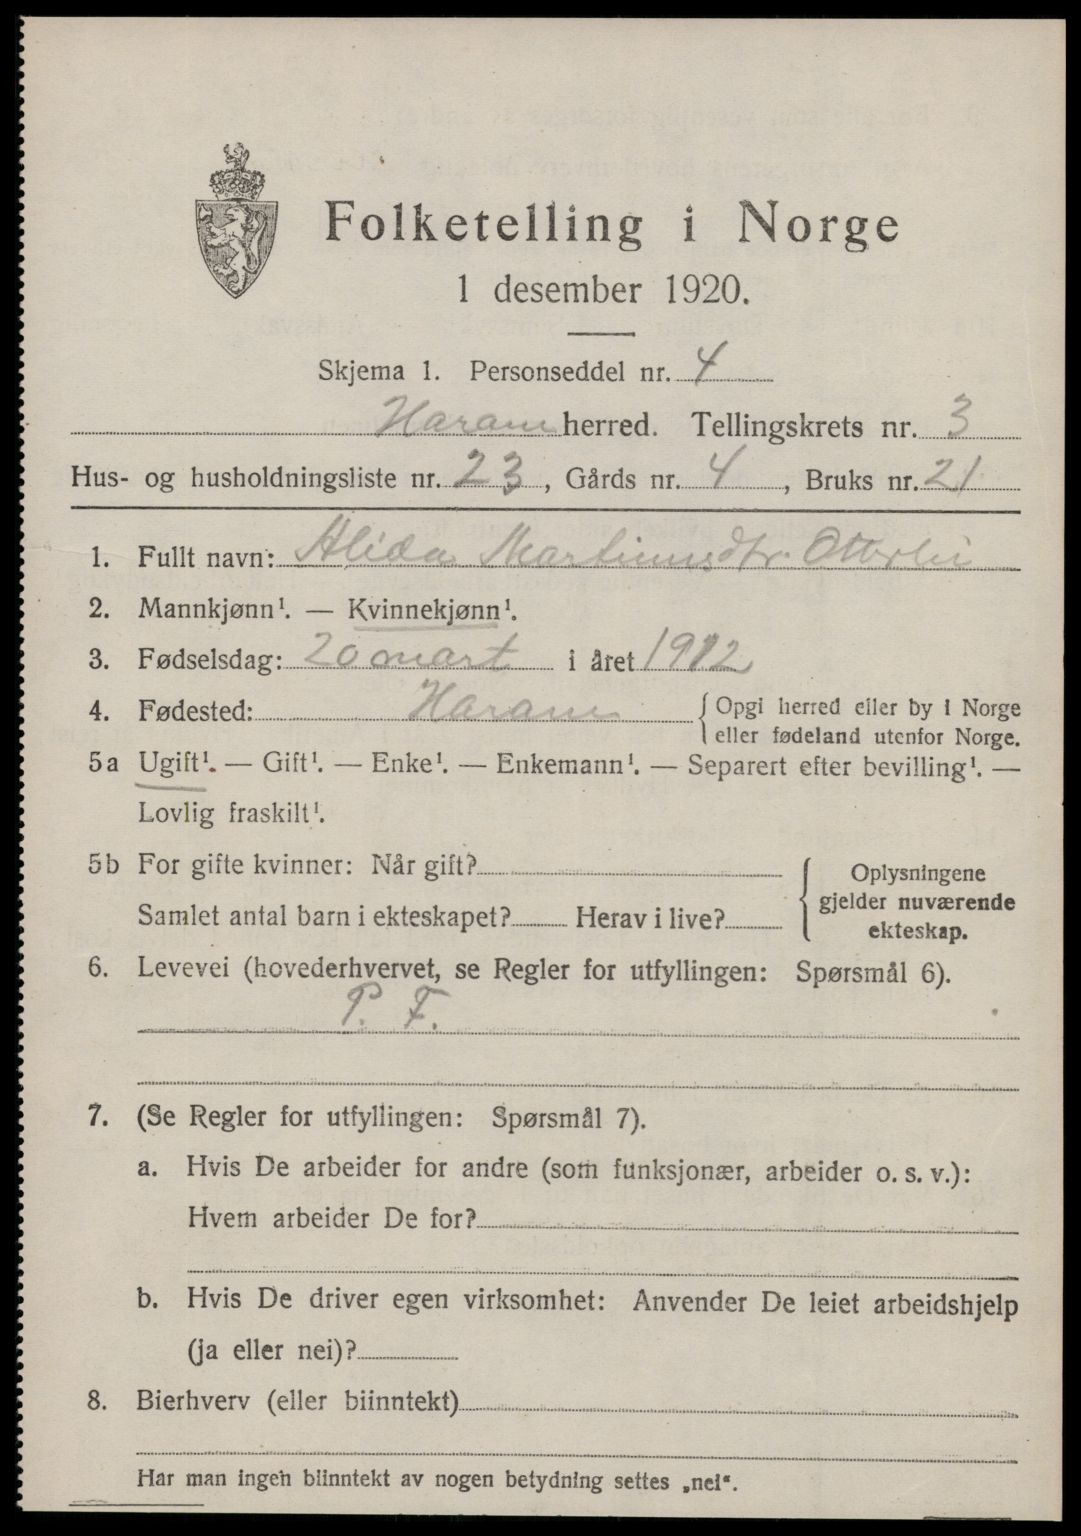 Folketelling i Norge
1 desember 1920.
Skjema 1. Personseddel nr. 4
Haram herred. Tellingskrets nr. 3
Hus- og husholdningsliste nr. 23, Gårds nr. 4, Bruks nr. 21
1. Fullt navn: Alida Martinusdtr. Otterlei
2. Mannkjønn¹. — Kvinnekjønn¹.
3. Fødselsdag: 20 mart i året 1912
4. Fødested: Haram {Opgi herred eller by i Norge
eller fødeland utenfor Norge.
5a Ugift¹. — Gift¹. — Enke¹. — Enkemann¹. — Separert efter bevilling¹. —
Lovlig fraskilt¹.
5b For gifte kvinner: Når gift?
Samlet antal barn i ekteskapet? Herav i live?
{Oplysningene
gjelder nuværende
ekteskap.
6. Levevei (hovederhvervet, se Regler for utfyllingen: Spørsmål 6).
P. F.
7. (Se Regler for utfyllingen: Spørsmål 7).
a. Hvis De arbeider for andre (som funksjonær, arbeider o. s. v.):
Hvem arbeider De for?
b. Hvis De driver egen virksomhet: Anvender De leiet arbeidshjelp
(ja eller nei)?
8. Bierhverv (eller biinntekt)
Har man ingen biinntekt av nogen betydning settes „nei“.